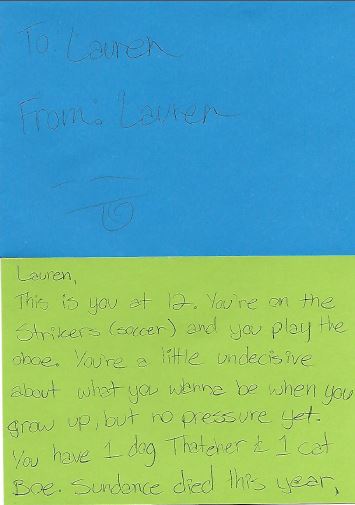 To: Lauren
From: Lauren
Lauren,
This is you at 12. You're on the
Strikers (soccer) and you play the
oboe. You're a little undecisive
about what you wanna be when you
grow up, but no pressure yet.
You have 1 dog Thatcher & 1 cat
Boe. Sundance died this year,